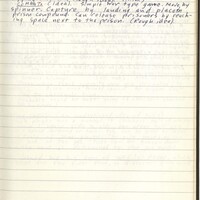 (idea). Simple war type game. Move by
spinner. Capture by landing and place in
prison compound. Can release prisoners by reach-
ing space next to the prison. (Rough idea)